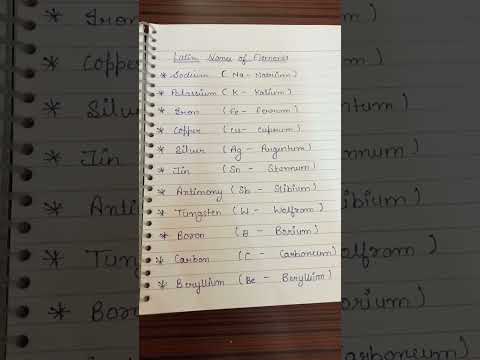 Latin Names of Elements
* Sodium ( Na - Natrium)
* Potassium ( K - Kalium)
* Iron ( Fe - Ferrum)
* Copper ( Cu - Cuprum)
* Silver ( Ag - Argentum)
* Tin ( Sn - Stannum)
* Antimony ( Sb - Stibium)
* Tungsten ( W - Wolfrom)
* Boron ( B - Borium)
* Carbon ( C - Carboneum)
* Beryllium ( Be - Beryllim)